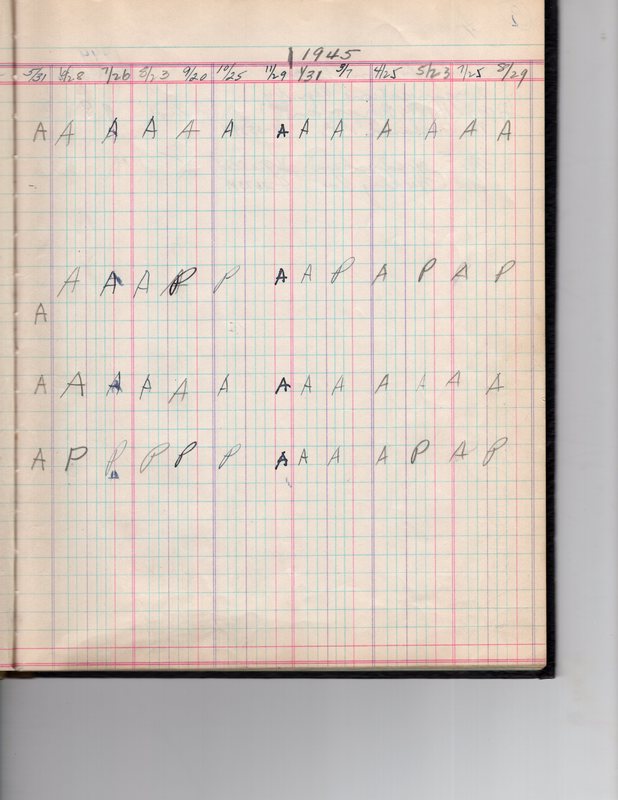 1945
5/31 6/28 7/26 8/23 9/20 10/25 11/29 1/31 3/7 4/25 5/23 7/25 8/29
A A A A A A A A A A A A A
A A A P P A A P A P A P
A
A A A A A A A A A A A A A
A P P P P P A A A A P A P
A